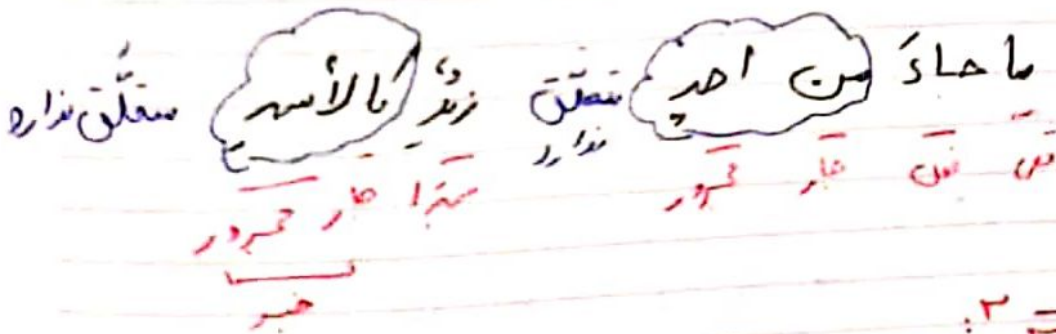 ما جاءَ من احدٍ متعلّق ندارد زیدٌ کالأسدِ متعلّق ندارد
نفی فعل جار مجرور مبتدا جار مجرور
خبر
۲.